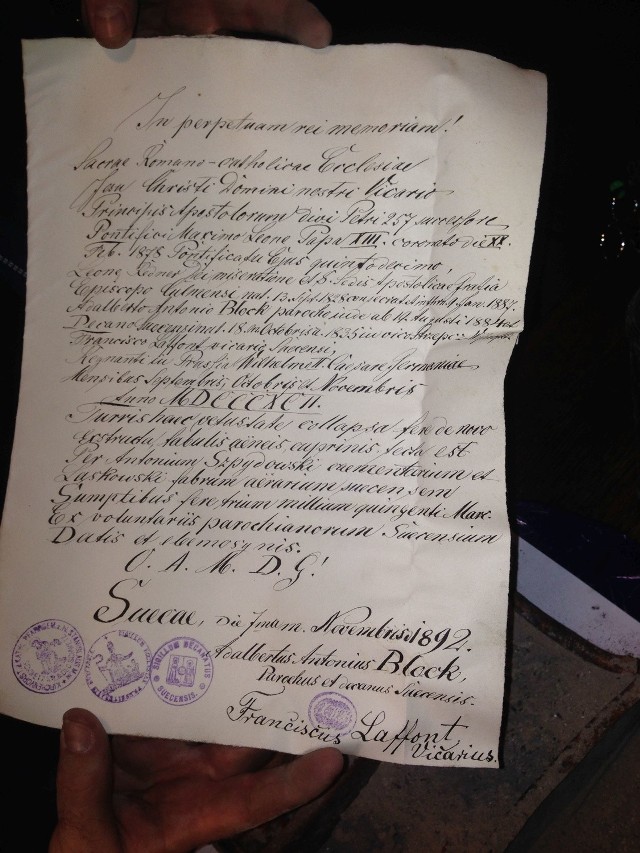 In perpetuam rei memoriam!
Sacrae Romano-catholicae Ecclesiae
Christi Domini nostri Vicario
Principis Apostolorum divi Petri 257 successore
Pontifici Maximo Leone Papa XIII. coronato die XX.
Feb. 1878 Pontificatu Ejus quintodecimo,
Leone Redner Dei miseratione et S. Sedis Apostolicae Gratia
Episcopo Culmensi nat. 13 Sept. 1828 consecrat. 1887.
Adalberto Antonio Block parocho inde ab 14 Augusti 1884 et
Decano Suecensi nat. 18 Octobris a. 1835
Francisco Laffont vicario Suecensi,
Regnante in Prussia Wilhelmo II. Caesare Germaniae
Mensibus Septembris, Octobris et Novembris
Anno MDCCCXCII.
Turris haec vetustate collapsa fere de novo
exstructa, tabulis aeneis cuprinis tecta est
Per Antonium Szpydowski caementarium et
Laskowski fabrum aerarium suecensem
Sumptibus fere trium millium quingenti Marc.
Ex voluntariis parochianorum Suecensium
Datis et elemosynis.
O. A. M. D. G!
Suecae, die Novembris 1892.
Adalbertus Antonius Block,
Parochus et decanus Suecensis.
Franciscus Laffont
Vicarius.
SIGILLUM DECANATUS SUECENSIS.